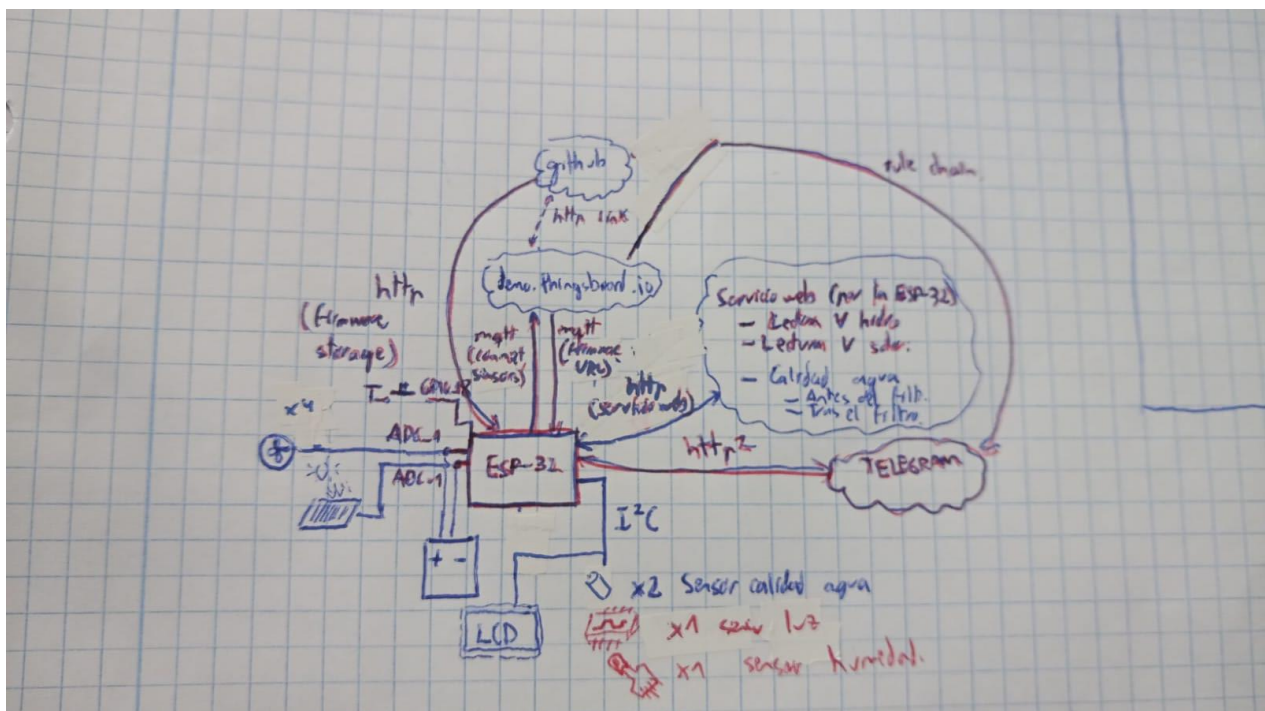 github
rule chain
http link
demo.thingsboard.io
http
(firmware
storage)
mqtt
(
sensors)
mqtt
(firmware
URL)
http
(servicio web)
Servicio web (por la ESP-32)
- Lectura V hidro
- Lectura V solar.
- Calidad agua
- Antes del filtr.
- Tras el filtro.
x4
ADC_1
ADC_1
ESP-32
http
TELEGRAM
I²C
+ -
LCD
x2 Sensor calidad agua
x1 sensor luz
x1 sensor humedad.